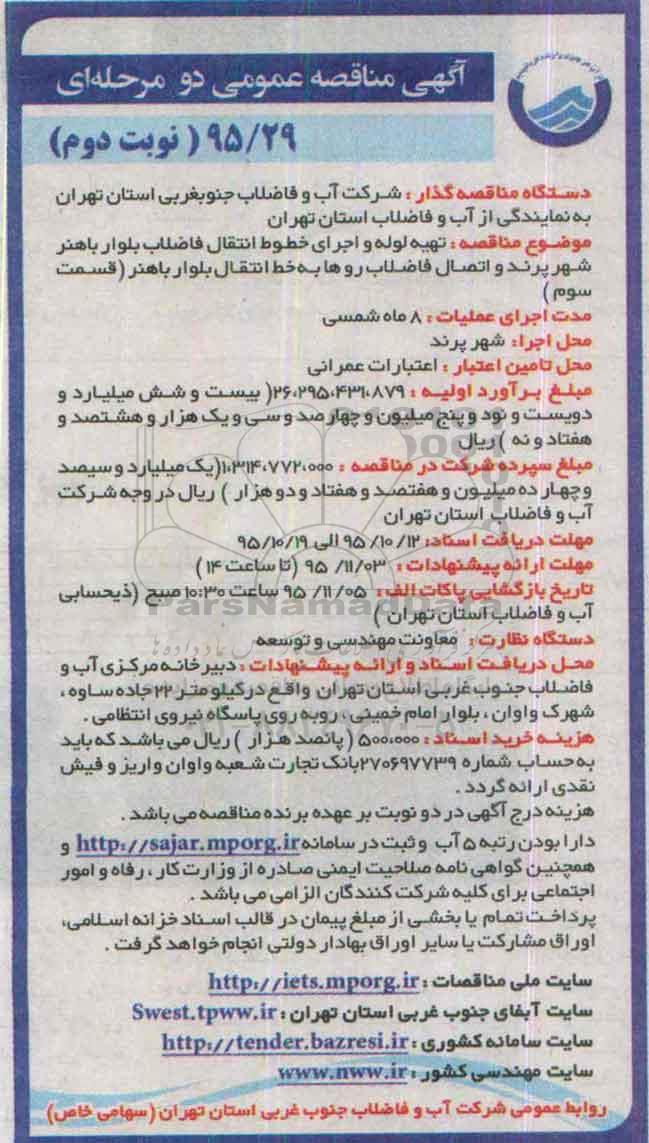 آگهی مناقصه عمومی دو مرحله‌ای
۹۵/۲۹ ( نوبت دوم)
دستگاه مناقصه گذار : شرکت آب و فاضلاب جنوبغربی استان تهران
به نمایندگی از آب و فاضلاب استان تهران
موضوع مناقصه : تهیه لوله و اجرای خطوط انتقال فاضلاب بلوار باهنر
شهر پرند و اتصال فاضلاب رو ها به خط انتقال بلوار باهنر (قسمت
سوم )
مدت اجرای عملیات : ۸ ماه شمسی
محل اجرا: شهر پرند
محل تامین اعتبار : اعتبارات عمرانی
مبلغ برآورد اولیه : ۲۶،۲۹۵،۴۳۱،۸۷۹( بیست و شش میلیارد و
دویست و نود و پنج میلیون و چهارصد و سی و یک هزار و هشتصد و
هفتاد و نه ) ریال
مبلغ سپرده شرکت در مناقصه : ۱،۳۱۴،۷۷۲،۰۰۰(یک میلیارد و سیصد
و چهار ده میلیون و هفتصد و هفتاد و دو هزار ) ریال در وجه شرکت
آب و فاضلاب استان تهران
مهلت دریافت اسناد: ۹۵/۱۰/۱۲ الی ۹۵/۱۰/۱۹
مهلت ارائه پیشنهادات : ۹۵/۱۱/۰۳ (تا ساعت ۱۴ )
تاریخ بازگشایی پاکات الف : ۹۵/۱۱/۰۵ ساعت ۱۰:۳۰ صبح (ذیحسابی
آب و فاضلاب استان تهران )
ParsNamadData
دستگاه نظارت : معاونت مهندسی و توسعه
محل دریافت اسناد و ارائه پیشنهادات : دبیرخانه مرکزی آب و
فاضلاب جنوب غربی استان تهران واقع در کیلومتر ۲۲ جاده ساوه ،
شهرک واوان ، بلوار امام خمینی ، روبه روی پاسگاه نیروی انتظامی .
هزینه خرید اسناد : ۵۰۰،۰۰۰ ( پانصد هزار ) ریال می باشد که باید
به حساب شماره ۲۷۰۶۹۷۷۳۹بانک تجارت شعبه واوان واریز و فیش
نقدی ارائه گردد .
هزینه درج آگهی در دو نوبت بر عهده برنده مناقصه می باشد .
دارا بودن رتبه ۵ آب و ثبت در سامانه http://sajar.mporg.ir و
همچنین گواهی نامه صلاحیت ایمنی صادره از وزارت کار ، رفاه و امور
اجتماعی برای کلیه شرکت کنندگان الزامی می باشد .
پرداخت تمام یا بخشی از مبلغ پیمان در قالب اسناد خزانه اسلامی،
اوراق مشارکت یا سایر اوراق بهادار دولتی انجام خواهد گرفت .
سایت ملی مناقصات : http://iets.mporg.ir
سایت آبفای جنوب غربی استان تهران : Swest.tpww.ir
سایت سامانه کشوری : http://tender.bazresi.ir
سایت مهندسی کشور : www.nww.ir
روابط عمومی شرکت آب و فاضلاب جنوب غربی استان تهران (سهامی خاص)